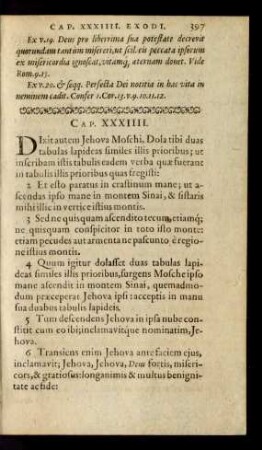 CAP. XXXIIII. EXODI. 397
Ex v.19. Deus pro liberrima sua potestate decrevit
quorundam tantùm misereri, ut scil. eis peccata ipsorum
ex misericordia ignoscat, vitamq; æternam donet. Vide
Rom.9.15.
Ex v.20. & seqq. Perfecta Dei notitia in hac vita in
neminem cadit. Confer 1. Cor.13. v.9.10.11.12.
CAP. XXXIIII.
DIxit autem Jehova Moschi, Dola tibi duas
tabulas lapideas similes illis prioribus; ut
inscribam istis tabulis eadem verba quæ fuerant
in tabulis illis prioribus quas fregisti:
2 Et esto paratus in crastinum mane; ut a-
scendas ipso mane in montem Sinai, & sistaris
mihi illic in vertice istius montis.
3 Sed ne quisquam ascendito tecum, etiamq;
ne quisquam conspicitor in toto isto monte:
etiam pecudes aut armenta ne pascunto è regio-
ne istius montis.
4 Quum igitur dolasset duas tabulas lapi-
deas similes illis prioribus, surgens Mosche ipso
mane ascendit in montem Sinai, quemadmo-
dum præceperat Jehova ipsi: acceptis in manu
sua duabus tabulis lapideis.
5 Tum descendens Jehova in ipsa nube con-
stitit cum eo ibi; inclamavitque nominatim, Je-
hova.
6 Transiens enim Jehova ante faciem ejus,
inclamavit; Jehova, Jehova, Deus fortis, miseri-
cors, & gratiosus: longanimis & multus benigni-
tate ac fide: